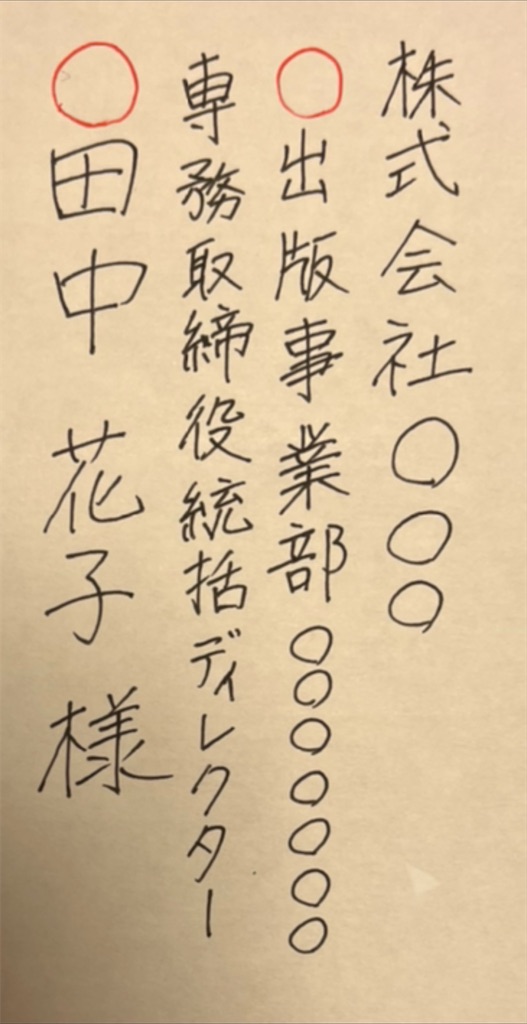 株式会社〇〇〇
〇出版事業部〇〇〇〇〇〇〇
専務取締役統括ディレクター
〇田中 花子 様